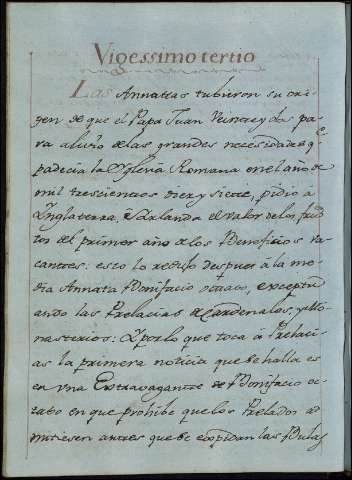 Vigessimo tertio
Las Annatas tubieron su ori-
gen de que el Papa Juan Veinte y dos pa-
ra alivio de las grandes necesidades q.e
padecia la Yglesia Romana en el año de
mil trescientos diez y siete, pidio à
Ynglaterra, è Irlanda el valor de los fru-
tos del primer año de los Beneficios va-
cantes: esto lo redujo despues à la me-
dia Annata Bonifacio octavo, exceptu-
ando las Prelacias de Cardenales, y Mo-
nasterios: Y por lo que toca à Prelaci-
as la primera noticia que se halla es
en una Extravagante de Bonifacio oc-
tabo en que prohibe que los Prelados ad-
mitiesen antes que se expidan las Bulas